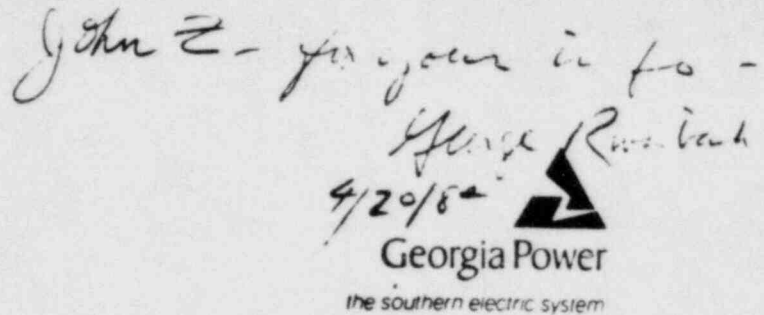 John Z - for your info -
George
4/20/8
Georgia Power
the southern electric system